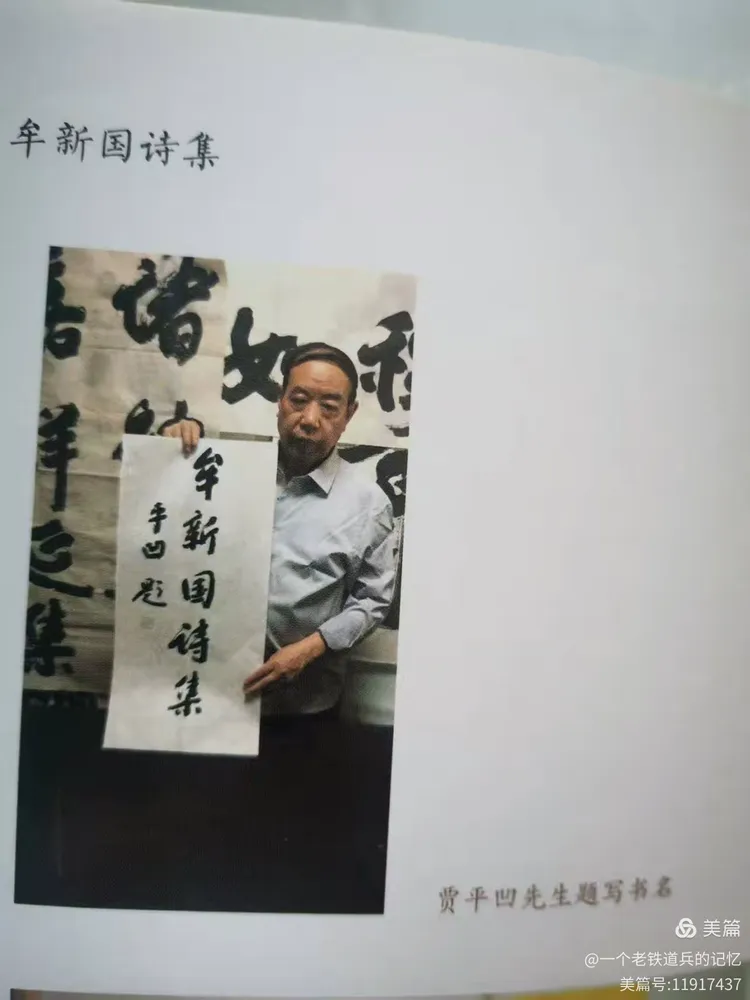 牟新国诗集
诸
如
祥
集
牟新国诗集
平凹题
贾平凹先生题写书名
美篇
@一个老铁道兵的记忆
美篇号:11917437